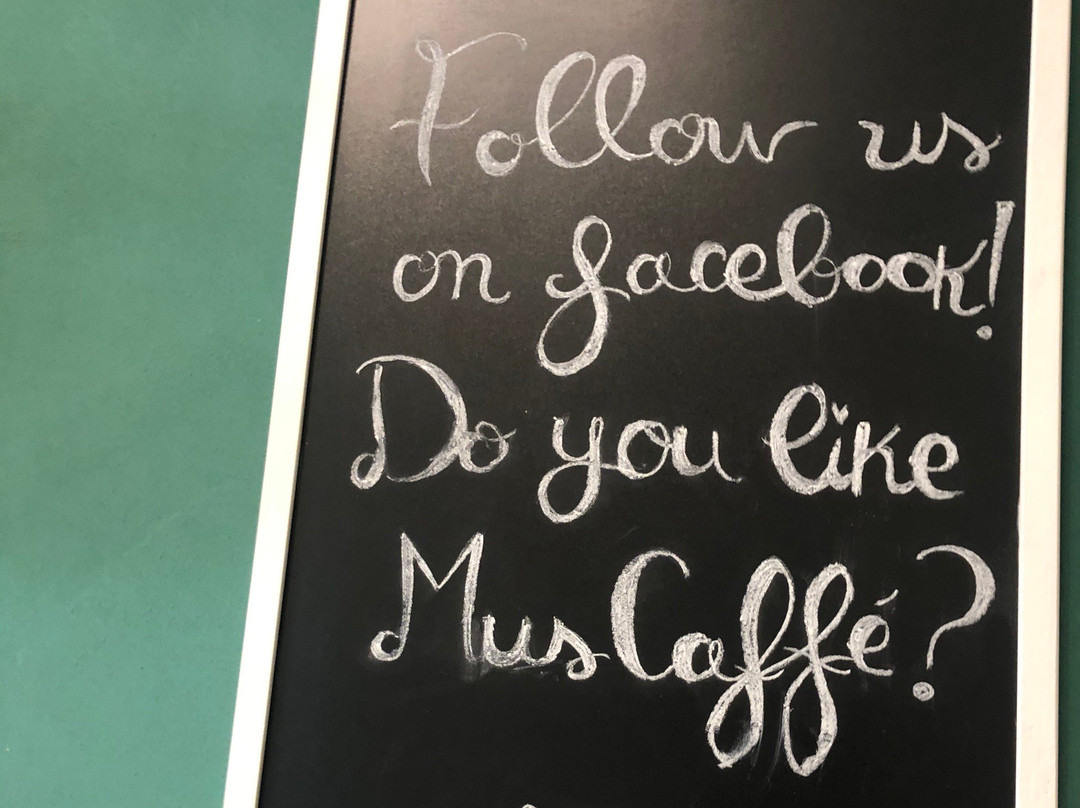 Follow us
on facebook!
Do you like
MusCaffé?